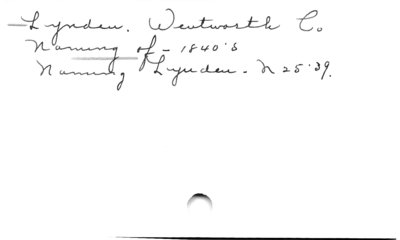 Lynden. Wentworth Co.
Naming of - 1840's
Naming Lynden - N 25.39.